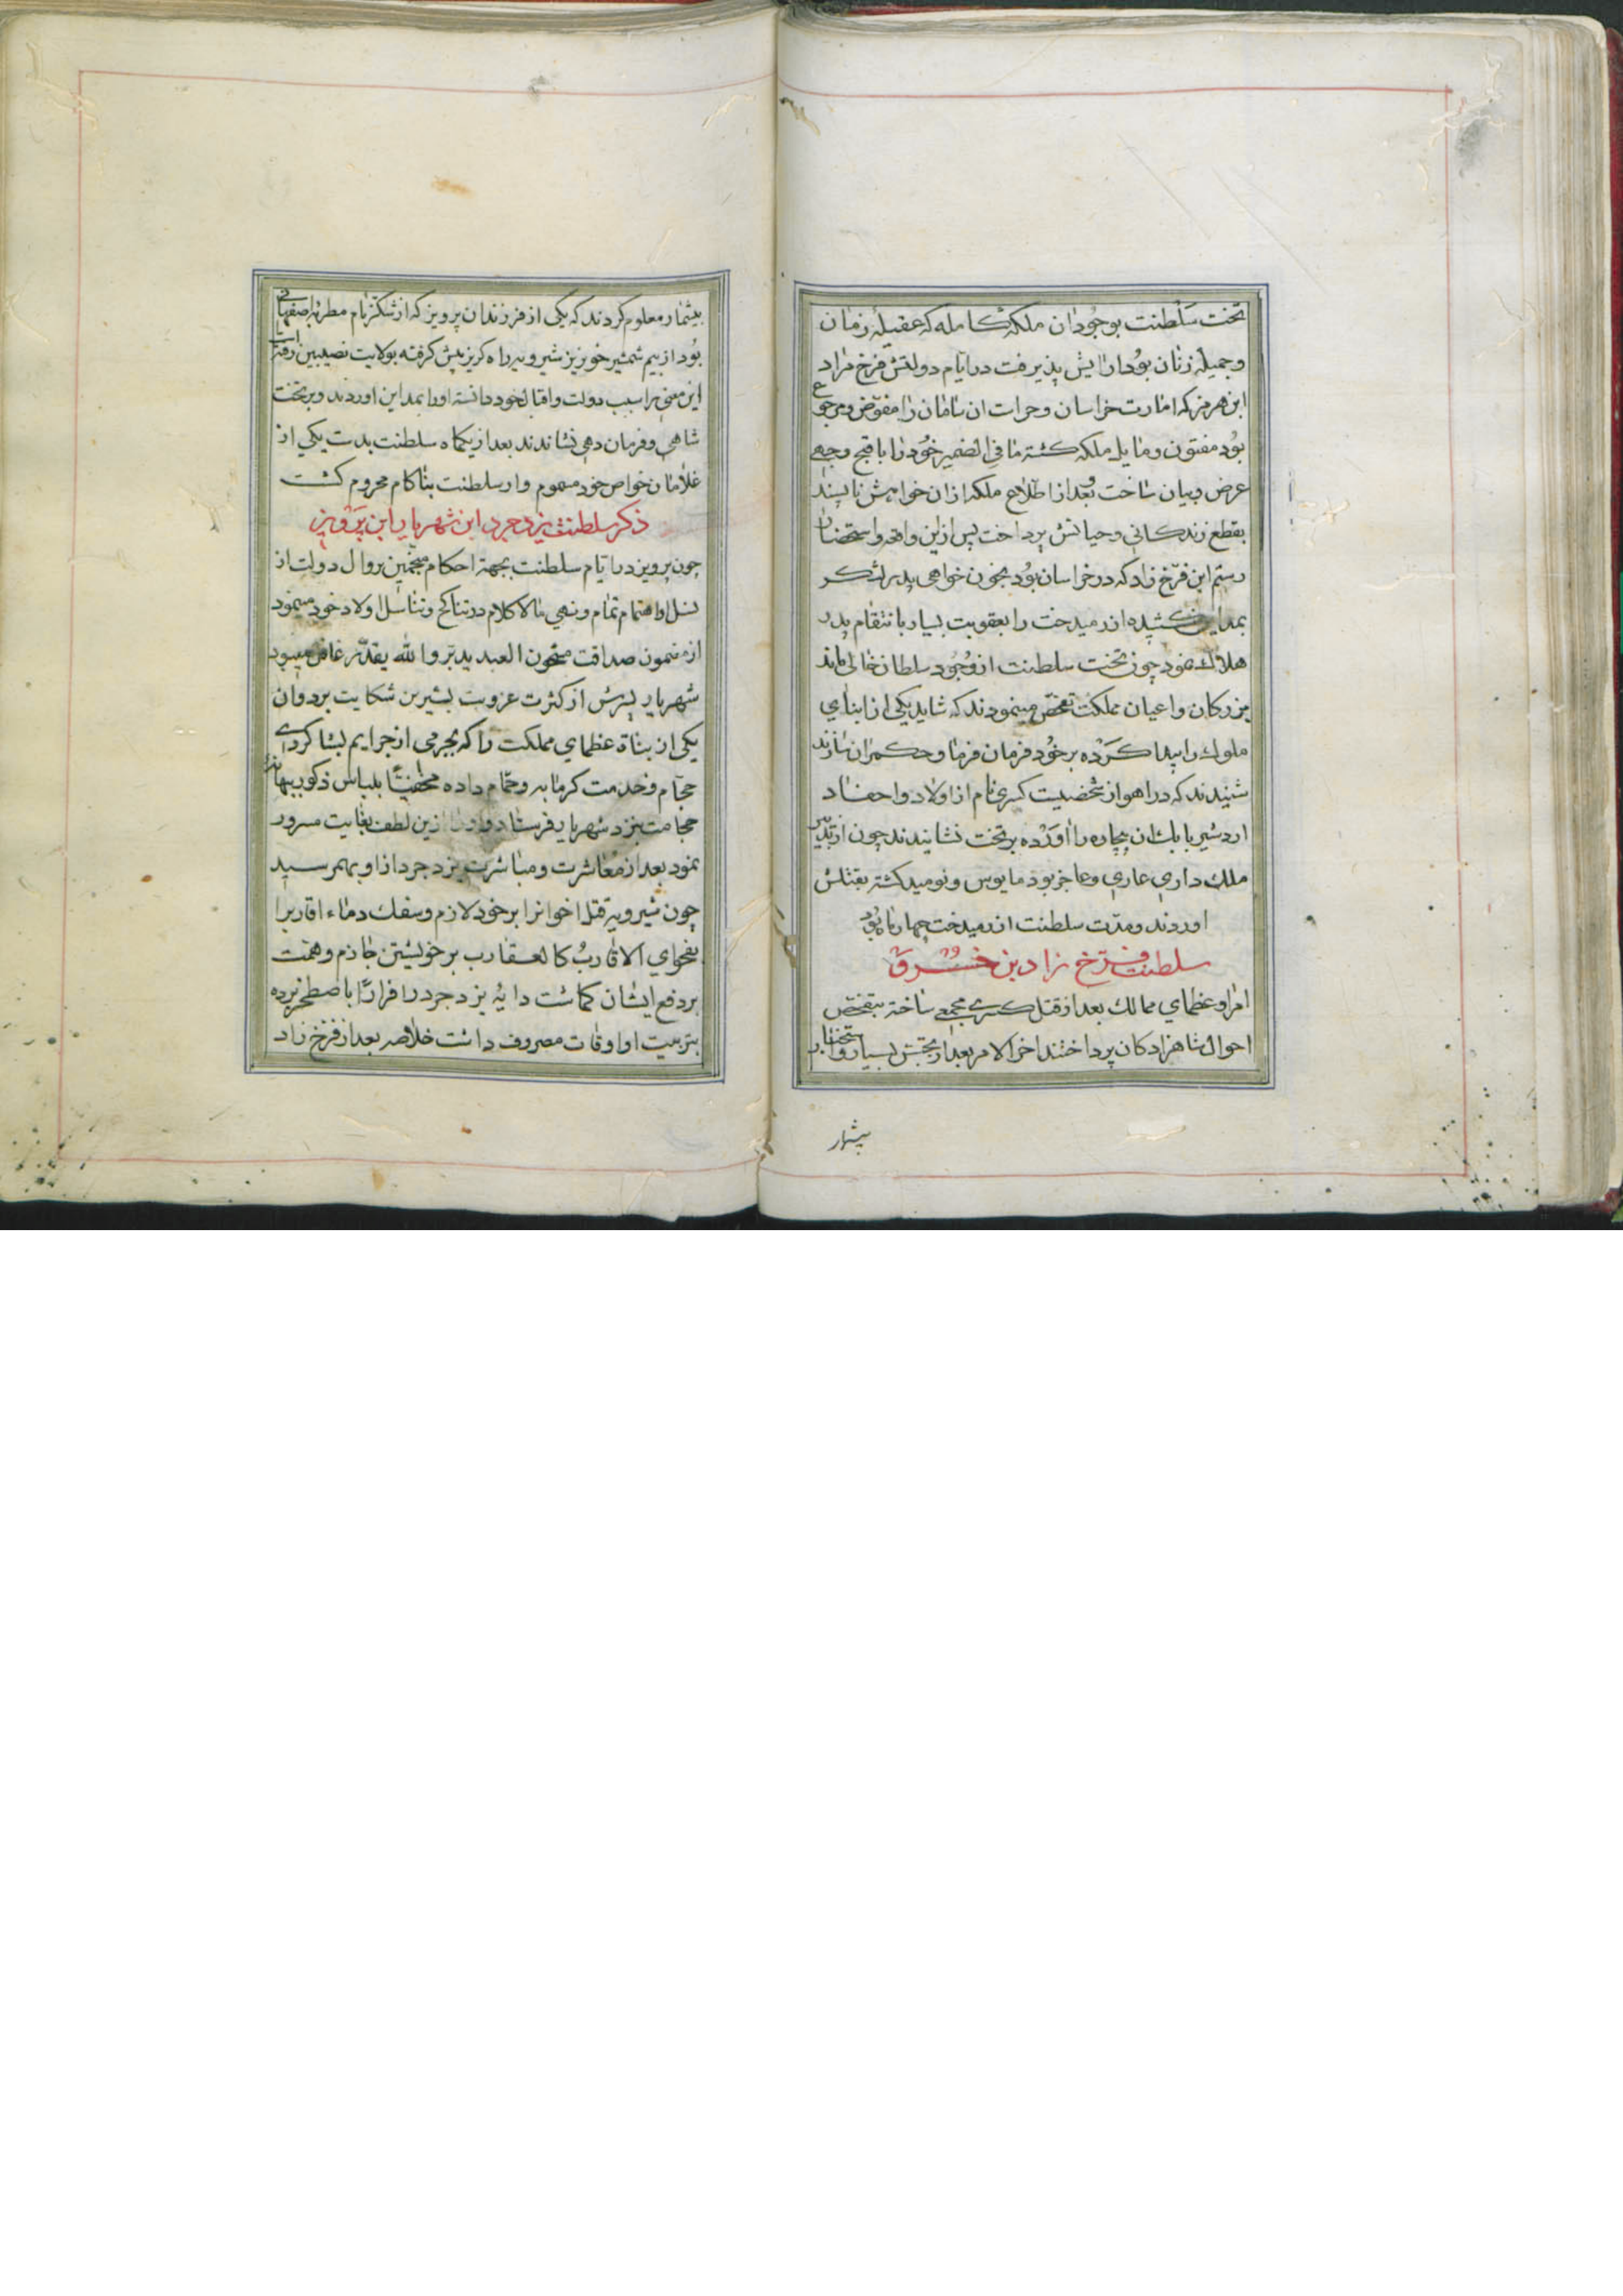 تخت سلطنت بوجود ان ملکهٔ کامله که عقیلهٔ زمان
و جمیلهٔ زنان بود ارایش پذیرفت در ایام دولتش فرخ زاد
ابن هرمز که امارت خراسان و حراست ان سامان را مفوض و مرجوع
بود مفتون و مایل ملکه کشته ما فی الضمیر خود را باقبح وجهی
عرض و بیان ساخت و بعد از اطلاع ملکه ازان خواهش ناپسند
بقطع زندکانی و حیاتش پرداخت پس ازین واقعه و استحضار
رستم ابن فرخ زاد که در خراسان بود بخون خواهی پدر لشکر
بمداین کشیده ازرمیدخت را بعقوبت بسیار بانتقام پدر
هلاک نمود چون تخت سلطنت از وجود سلطان خالی ماند
بزرکان و اعیان مملکت تفحص مینمودند که شاید یکی از ابنای
ملوک را پیدا کرده بر خود فرمان فرما و حکمران سازند
شنیدند که در اهواز شخصیت کسری نام از اولاد و احفاد
اردشیر بابک ان بیچاره را اورده بر تخت نشانیدند چون از تدبیر
ملک داری عاری و عاجز بود مایوس و نومید کشته بقتلش
اوردند و مدت سلطنت ازرمیدخت چهار ماه بود
سلطنت فرخ زاد بن خسرو
امرا و عظمای ممالک بعد از قتل کسری مجمعی ساخته بتفحص
احوال شاهزادکان پرداختند اخر الامر بعد از تجسس بسیار و
بیشمار
بیشمار معلوم کردند که یکی از فرزندان پرویز که از شکر نام مطربه اصفهانی
بود از بیم شمشیر خونریز شیرویه راه کریز پیش کرفته بولایت نصیبین رفته
این معنی را سبب دولت و اقبال خود دانسته اورا بمداین اوردند و بر تخت
شاهی و فرمان دهی نشاندند بعد از یکماه سلطنت بدست یکی از
غلامان خواص خود مسموم و از سلطنت بناکام محروم کشت
ذکر سلطنت یزدجرد ابن شهریار ابن پرویز
چون پرویز در ایام سلطنت بجهة احکام منجمین بزوال دولت از
نسل او اهتمام تمام و نهی مالا کلام در تناکح و تناسل اولاد خود مینمود
از مضمون صداقت مشحون العبد یدبر و الله یقدر غافل میبود
شهریار پسرش از کثرت عزوبت بشیرین شکایت برد و ان
یکی از بناة عظمای مملکت را که بجرمی از جرایم بشاکردی
حجام و خدمت کرمابه و حمام داده مخفیتًا بلباس ذکور ببهانه
حجامت بنزد شهریار فرستاد و او را ازین لطف بغایت مسرور
نمود بعد از معاشرت و مباشرت یزدجرد ازو بهم رسید
چون شیرویه قتل اخوانرا بر خود لازم و سفک دماء اقاربرا
بفحوای الاقارب کالعقارب بر خویشتن جازم و همت
بر دفع ایشان کماشت دایهٔ یزدجرد را فرارًا باصطخر برده
بتربیت او اوقات مصروف داشت خلاصه بعد از فرخ زاد